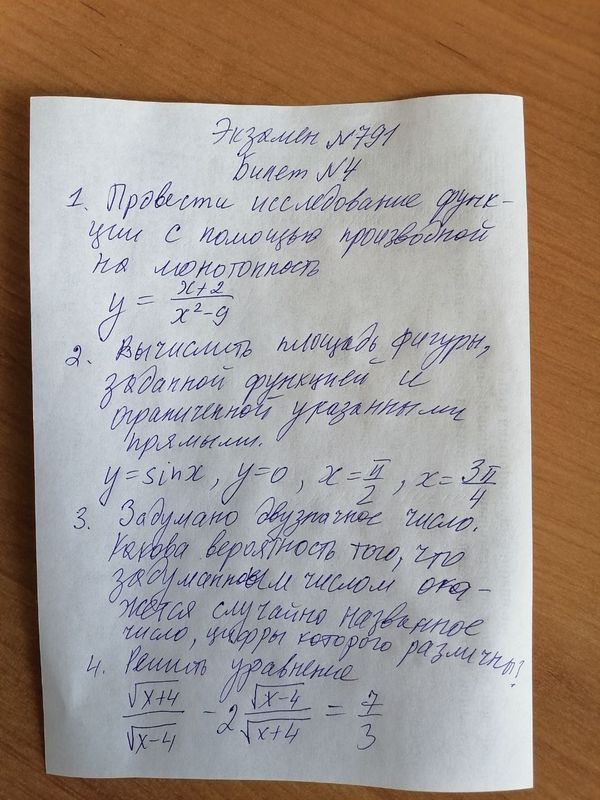 Экзамен №791
Билет №4
1. Провести исследование функ-
ции с помощью производной
на монотонность
y = (x+2)/(x²-9)
2. Вычислить площадь фигуры,
заданной функцией и
ограниченной указанными
прямыми.
y=sinx, y=0, x=π/2, x=3π/4
3. Задумано двузначное число.
Какова вероятность того, что
задуманным числом ока-
жется случайно названное
число, цифры которого различны?
4. Решить уравнение
√(x+4)/√(x-4) - 2 √(x-4)/√(x+4) = 7/3